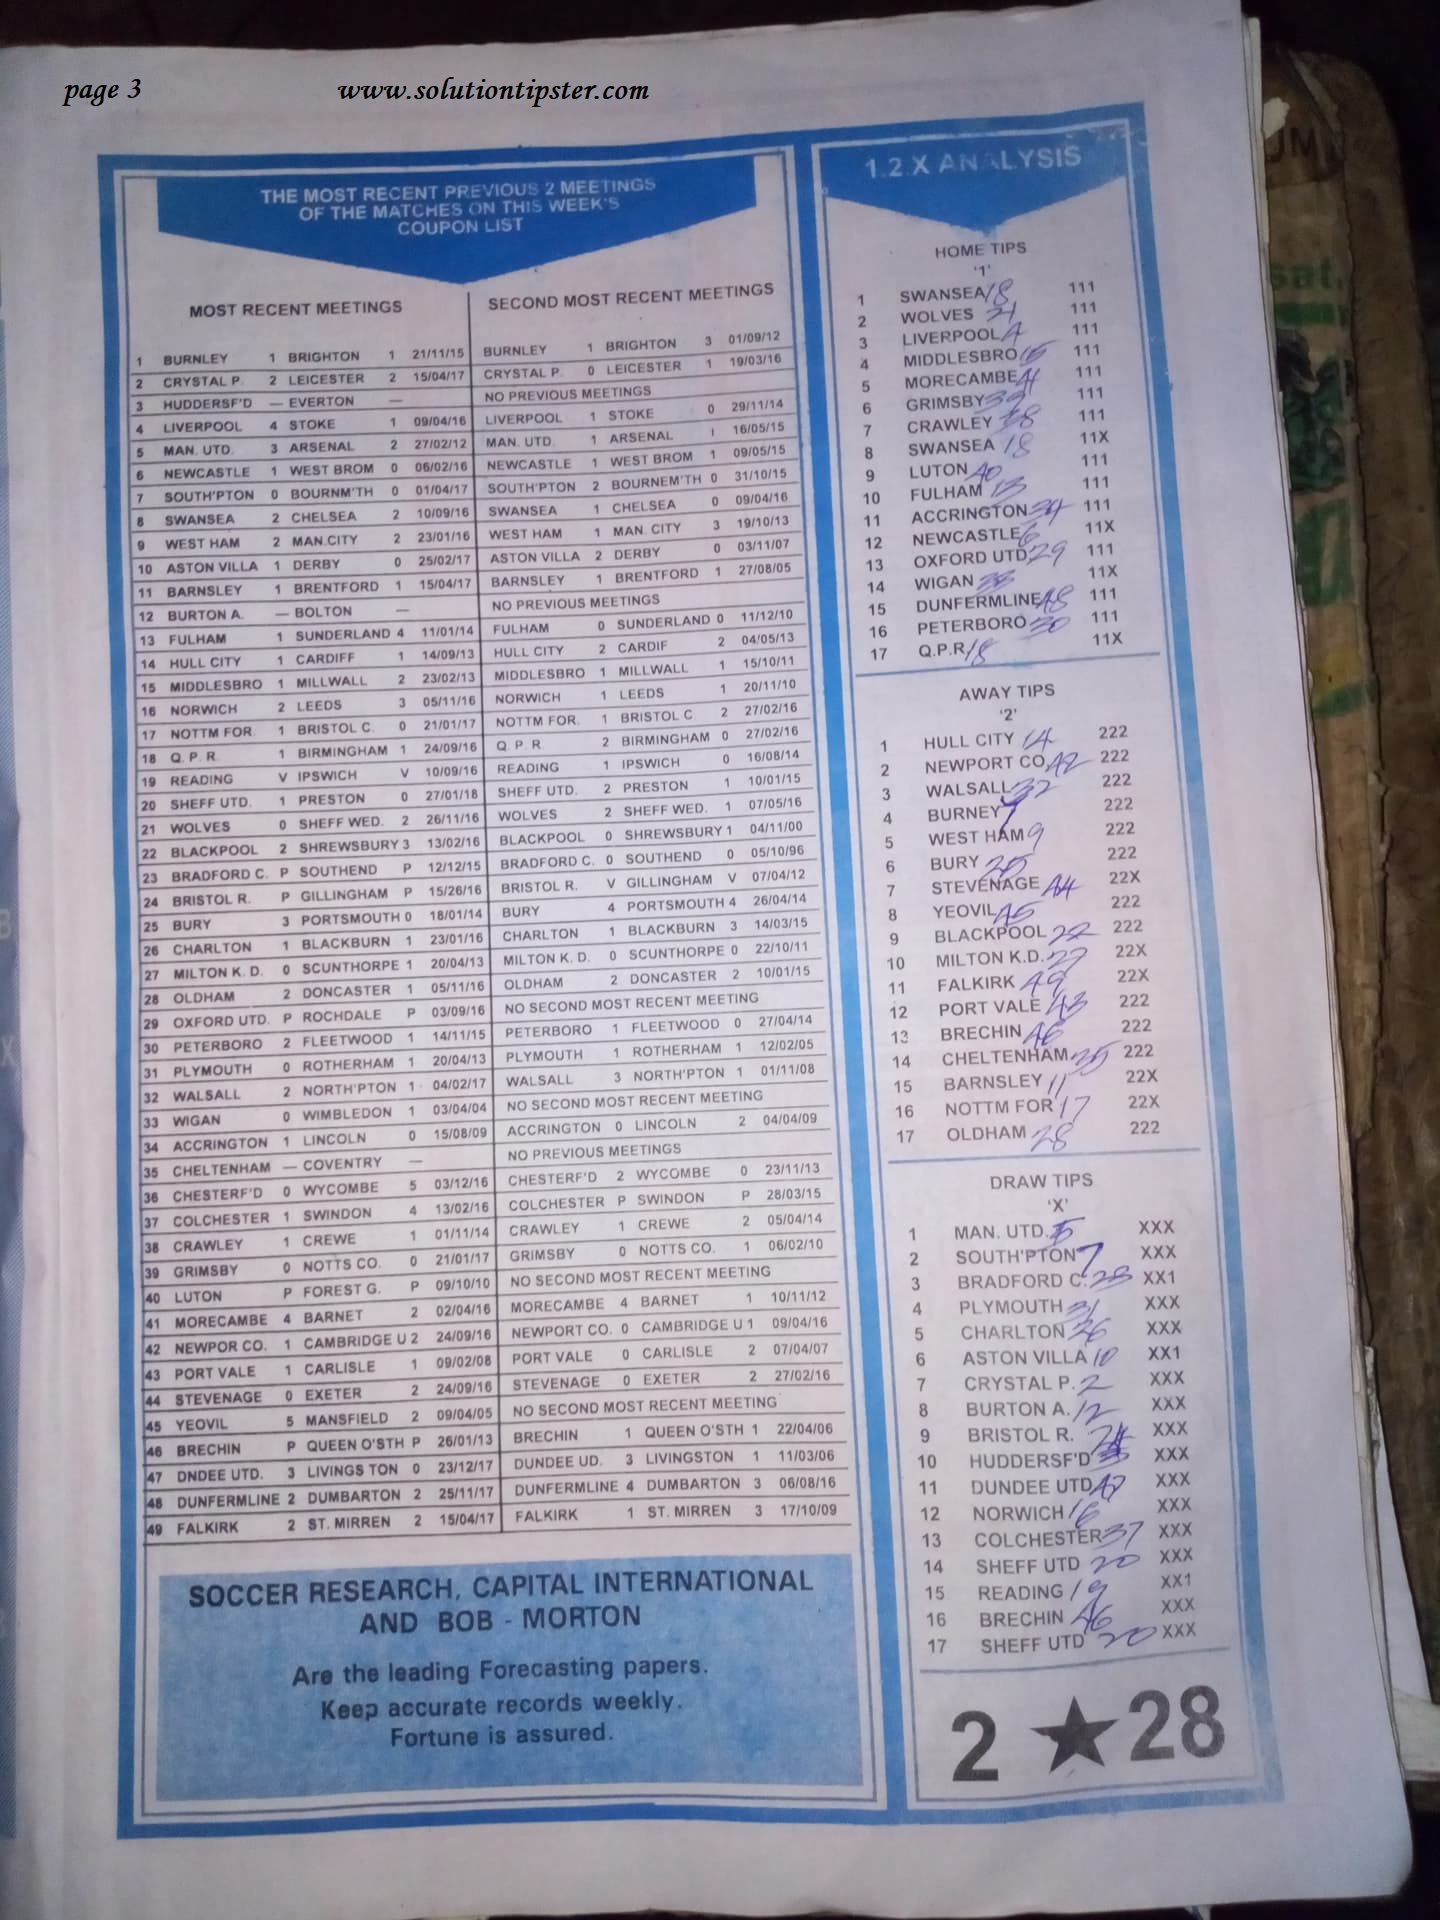 page 3
www.solutiontipster.com
THE MOST RECENT PREVIOUS 2 MEETINGS
OF THE MATCHES ON THIS WEEK'S
COUPON LIST
MOST RECENT MEETINGS
SECOND MOST RECENT MEETINGS
1 BURNLEY 1 BRIGHTON 1 21/11/15 BURNLEY 1 BRIGHTON 3 01/09/12
2 CRYSTAL P. 2 LEICESTER 2 15/04/17 CRYSTAL P. 0 LEICESTER 1 19/03/16
3 HUDDERSF'D — EVERTON — NO PREVIOUS MEETINGS
4 LIVERPOOL 4 STOKE 1 09/04/16 LIVERPOOL 1 STOKE 0 29/11/14
5 MAN. UTD. 3 ARSENAL 2 27/02/12 MAN. UTD. 1 ARSENAL 1 16/05/15
6 NEWCASTLE 1 WEST BROM 0 06/02/16 NEWCASTLE 1 WEST BROM 1 09/05/15
7 SOUTH'PTON 0 BOURNM'TH 0 01/04/17 SOUTH'PTON 2 BOURNEM'TH 0 31/10/15
8 SWANSEA 2 CHELSEA 2 10/09/16 SWANSEA 1 CHELSEA 0 09/04/16
9 WEST HAM 2 MAN.CITY 2 23/01/16 WEST HAM 1 MAN. CITY 3 19/10/13
10 ASTON VILLA 1 DERBY 0 25/02/17 ASTON VILLA 2 DERBY 0 03/11/07
11 BARNSLEY 1 BRENTFORD 1 15/04/17 BARNSLEY 1 BRENTFORD 1 27/08/05
12 BURTON A. — BOLTON — NO PREVIOUS MEETINGS
13 FULHAM 1 SUNDERLAND 4 11/01/14 FULHAM 0 SUNDERLAND 0 11/12/10
14 HULL CITY 1 CARDIFF 1 14/09/13 HULL CITY 2 CARDIF 2 04/05/13
15 MIDDLESBRO 1 MILLWALL 2 23/02/13 MIDDLESBRO 1 MILLWALL 1 15/10/11
16 NORWICH 2 LEEDS 3 05/11/16 NORWICH 1 LEEDS 1 20/11/10
17 NOTTM FOR. 1 BRISTOL C. 0 21/01/17 NOTTM FOR. 1 BRISTOL C. 2 27/02/16
18 Q. P. R. 1 BIRMINGHAM 1 24/09/16 Q. P. R. 2 BIRMINGHAM 0 27/02/16
19 READING V IPSWICH V 10/09/16 READING 1 IPSWICH 0 16/08/14
20 SHEFF UTD. 1 PRESTON 0 27/01/18 SHEFF UTD. 2 PRESTON 1 10/01/15
21 WOLVES 0 SHEFF WED. 2 26/11/16 WOLVES 2 SHEFF WED. 1 07/05/16
22 BLACKPOOL 2 SHREWSBURY 3 13/02/16 BLACKPOOL 0 SHREWSBURY 1 04/11/00
23 BRADFORD C. P SOUTHEND P 12/12/15 BRADFORD C. 0 SOUTHEND 0 05/10/96
24 BRISTOL R. P GILLINGHAM P 15/26/16 BRISTOL R. V GILLINGHAM V 07/04/12
25 BURY 3 PORTSMOUTH 0 18/01/14 BURY 4 PORTSMOUTH 4 26/04/14
26 CHARLTON 1 BLACKBURN 1 23/01/16 CHARLTON 1 BLACKBURN 3 14/03/15
27 MILTON K. D. 0 SCUNTHORPE 1 20/04/13 MILTON K. D. 0 SCUNTHORPE 0 22/10/11
28 OLDHAM 2 DONCASTER 1 05/11/16 OLDHAM 2 DONCASTER 2 10/01/15
29 OXFORD UTD. P ROCHDALE P 03/09/16 NO SECOND MOST RECENT MEETING
30 PETERBORO 2 FLEETWOOD 1 14/11/15 PETERBORO 1 FLEETWOOD 0 27/04/14
31 PLYMOUTH 0 ROTHERHAM 1 20/04/13 PLYMOUTH 1 ROTHERHAM 1 12/02/05
32 WALSALL 2 NORTH'PTON 1 04/02/17 WALSALL 3 NORTH'PTON 1 01/11/08
33 WIGAN 0 WIMBLEDON 1 03/04/04 NO SECOND MOST RECENT MEETING
34 ACCRINGTON 1 LINCOLN 0 15/08/09 ACCRINGTON 0 LINCOLN 2 04/04/09
35 CHELTENHAM — COVENTRY — NO PREVIOUS MEETINGS
36 CHESTERF'D 0 WYCOMBE 5 03/12/16 CHESTERF'D 2 WYCOMBE 0 23/11/13
37 COLCHESTER 1 SWINDON 4 13/02/16 COLCHESTER P SWINDON P 28/03/15
38 CRAWLEY 1 CREWE 1 01/11/14 CRAWLEY 1 CREWE 2 05/04/14
39 GRIMSBY 0 NOTTS CO. 0 21/01/17 GRIMSBY 0 NOTTS CO. 1 06/02/10
40 LUTON P FOREST G. P 09/10/10 NO SECOND MOST RECENT MEETING
41 MORECAMBE 4 BARNET 2 02/04/16 MORECAMBE 4 BARNET 1 10/11/12
42 NEWPOR CO. 1 CAMBRIDGE U 2 24/09/16 NEWPORT CO. 0 CAMBRIDGE U 1 09/04/16
43 PORT VALE 1 CARLISLE 1 09/02/08 PORT VALE 0 CARLISLE 2 07/04/07
44 STEVENAGE 0 EXETER 2 24/09/16 STEVENAGE 0 EXETER 2 27/02/16
45 YEOVIL 5 MANSFIELD 2 09/04/05 NO SECOND MOST RECENT MEETING
46 BRECHIN P QUEEN O'STH P 26/01/13 BRECHIN 1 QUEEN O'STH 1 22/04/06
47 DNDEE UTD. 3 LIVINGS TON 0 23/12/17 DUNDEE UD. 3 LIVINGSTON 1 11/03/06
48 DUNFERMLINE 2 DUMBARTON 2 25/11/17 DUNFERMLINE 4 DUMBARTON 3 06/08/16
49 FALKIRK 2 ST. MIRREN 2 15/04/17 FALKIRK 1 ST. MIRREN 3 17/10/09
SOCCER RESEARCH, CAPITAL INTERNATIONAL
AND BOB - MORTON
Are the leading Forecasting papers.
Keep accurate records weekly.
Fortune is assured.
1.2 X ANALYSIS
HOME TIPS
'1'
1 SWANSEA 18 111
2 WOLVES 21 111
3 LIVERPOOL 4 111
4 MIDDLESBRO 15 111
5 MORECAMBE 41 111
6 GRIMSBY 39 111
7 CRAWLEY 38 111
8 SWANSEA 18 11X
9 LUTON 40 111
10 FULHAM 13 111
11 ACCRINGTON 34 111
12 NEWCASTLE 6 11X
13 OXFORD UTD 29 111
14 WIGAN 33 11X
15 DUNFERMLINE 48 111
16 PETERBORO 30 111
17 Q.P.R 18 11X
AWAY TIPS
'2'
1 HULL CITY 14 222
2 NEWPORT CO 42 222
3 WALSALL 32 222
4 BURNEY 1 222
5 WEST HAM 9 222
6 BURY 25 222
7 STEVENAGE 44 22X
8 YEOVIL 45 222
9 BLACKPOOL 22 222
10 MILTON K.D. 27 22X
11 FALKIRK 49 22X
12 PORT VALE 43 222
13 BRECHIN 46 222
14 CHELTENHAM 35 222
15 BARNSLEY 11 22X
16 NOTTM FOR 17 22X
17 OLDHAM 28 222
DRAW TIPS
'X'
1 MAN. UTD. 5 XXX
2 SOUTH'PTON 7 XXX
3 BRADFORD C. 23 XX1
4 PLYMOUTH 31 XXX
5 CHARLTON 26 XXX
6 ASTON VILLA 10 XX1
7 CRYSTAL P. 2 XXX
8 BURTON A. 12 XXX
9 BRISTOL R. 24 XXX
10 HUDDERSF'D 3 XXX
11 DUNDEE UTD 47 XXX
12 NORWICH 16 XXX
13 COLCHESTER 37 XXX
14 SHEFF UTD 20 XXX
15 READING 19 XX1
16 BRECHIN 46 XXX
17 SHEFF UTD 20 XXX
2 ★ 28